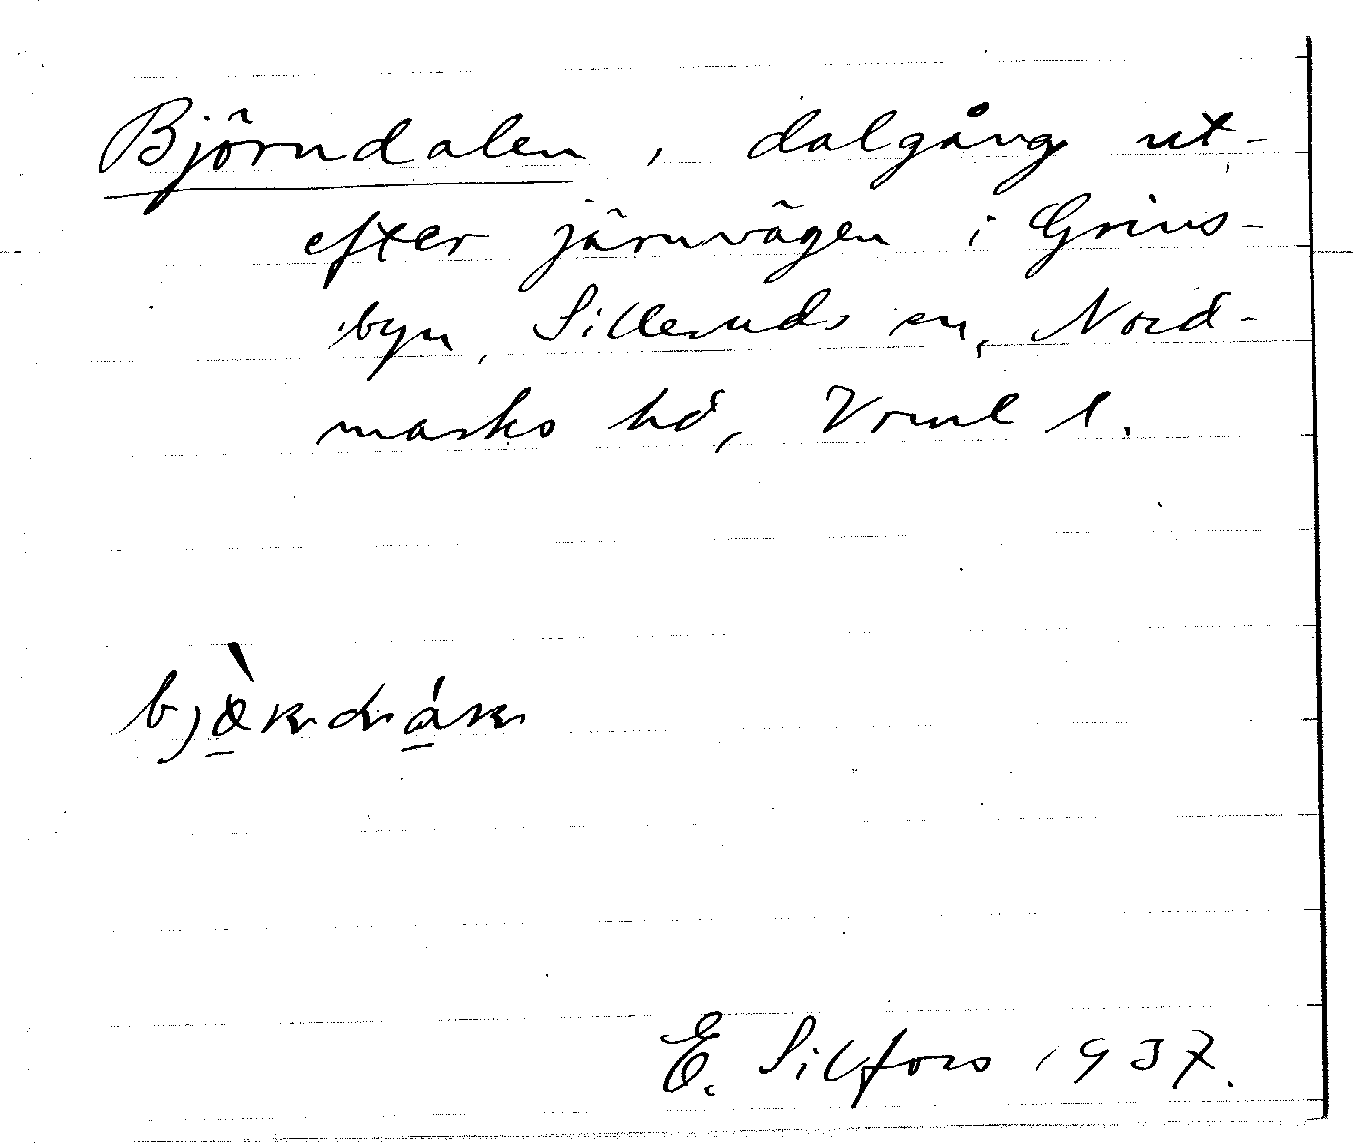 Björndalen, dalgång ut-
efter järnvägen i Grins-
byn, Silleruds sn, Nord-
marks hd, Vrml l.
E. Silfors 1937.